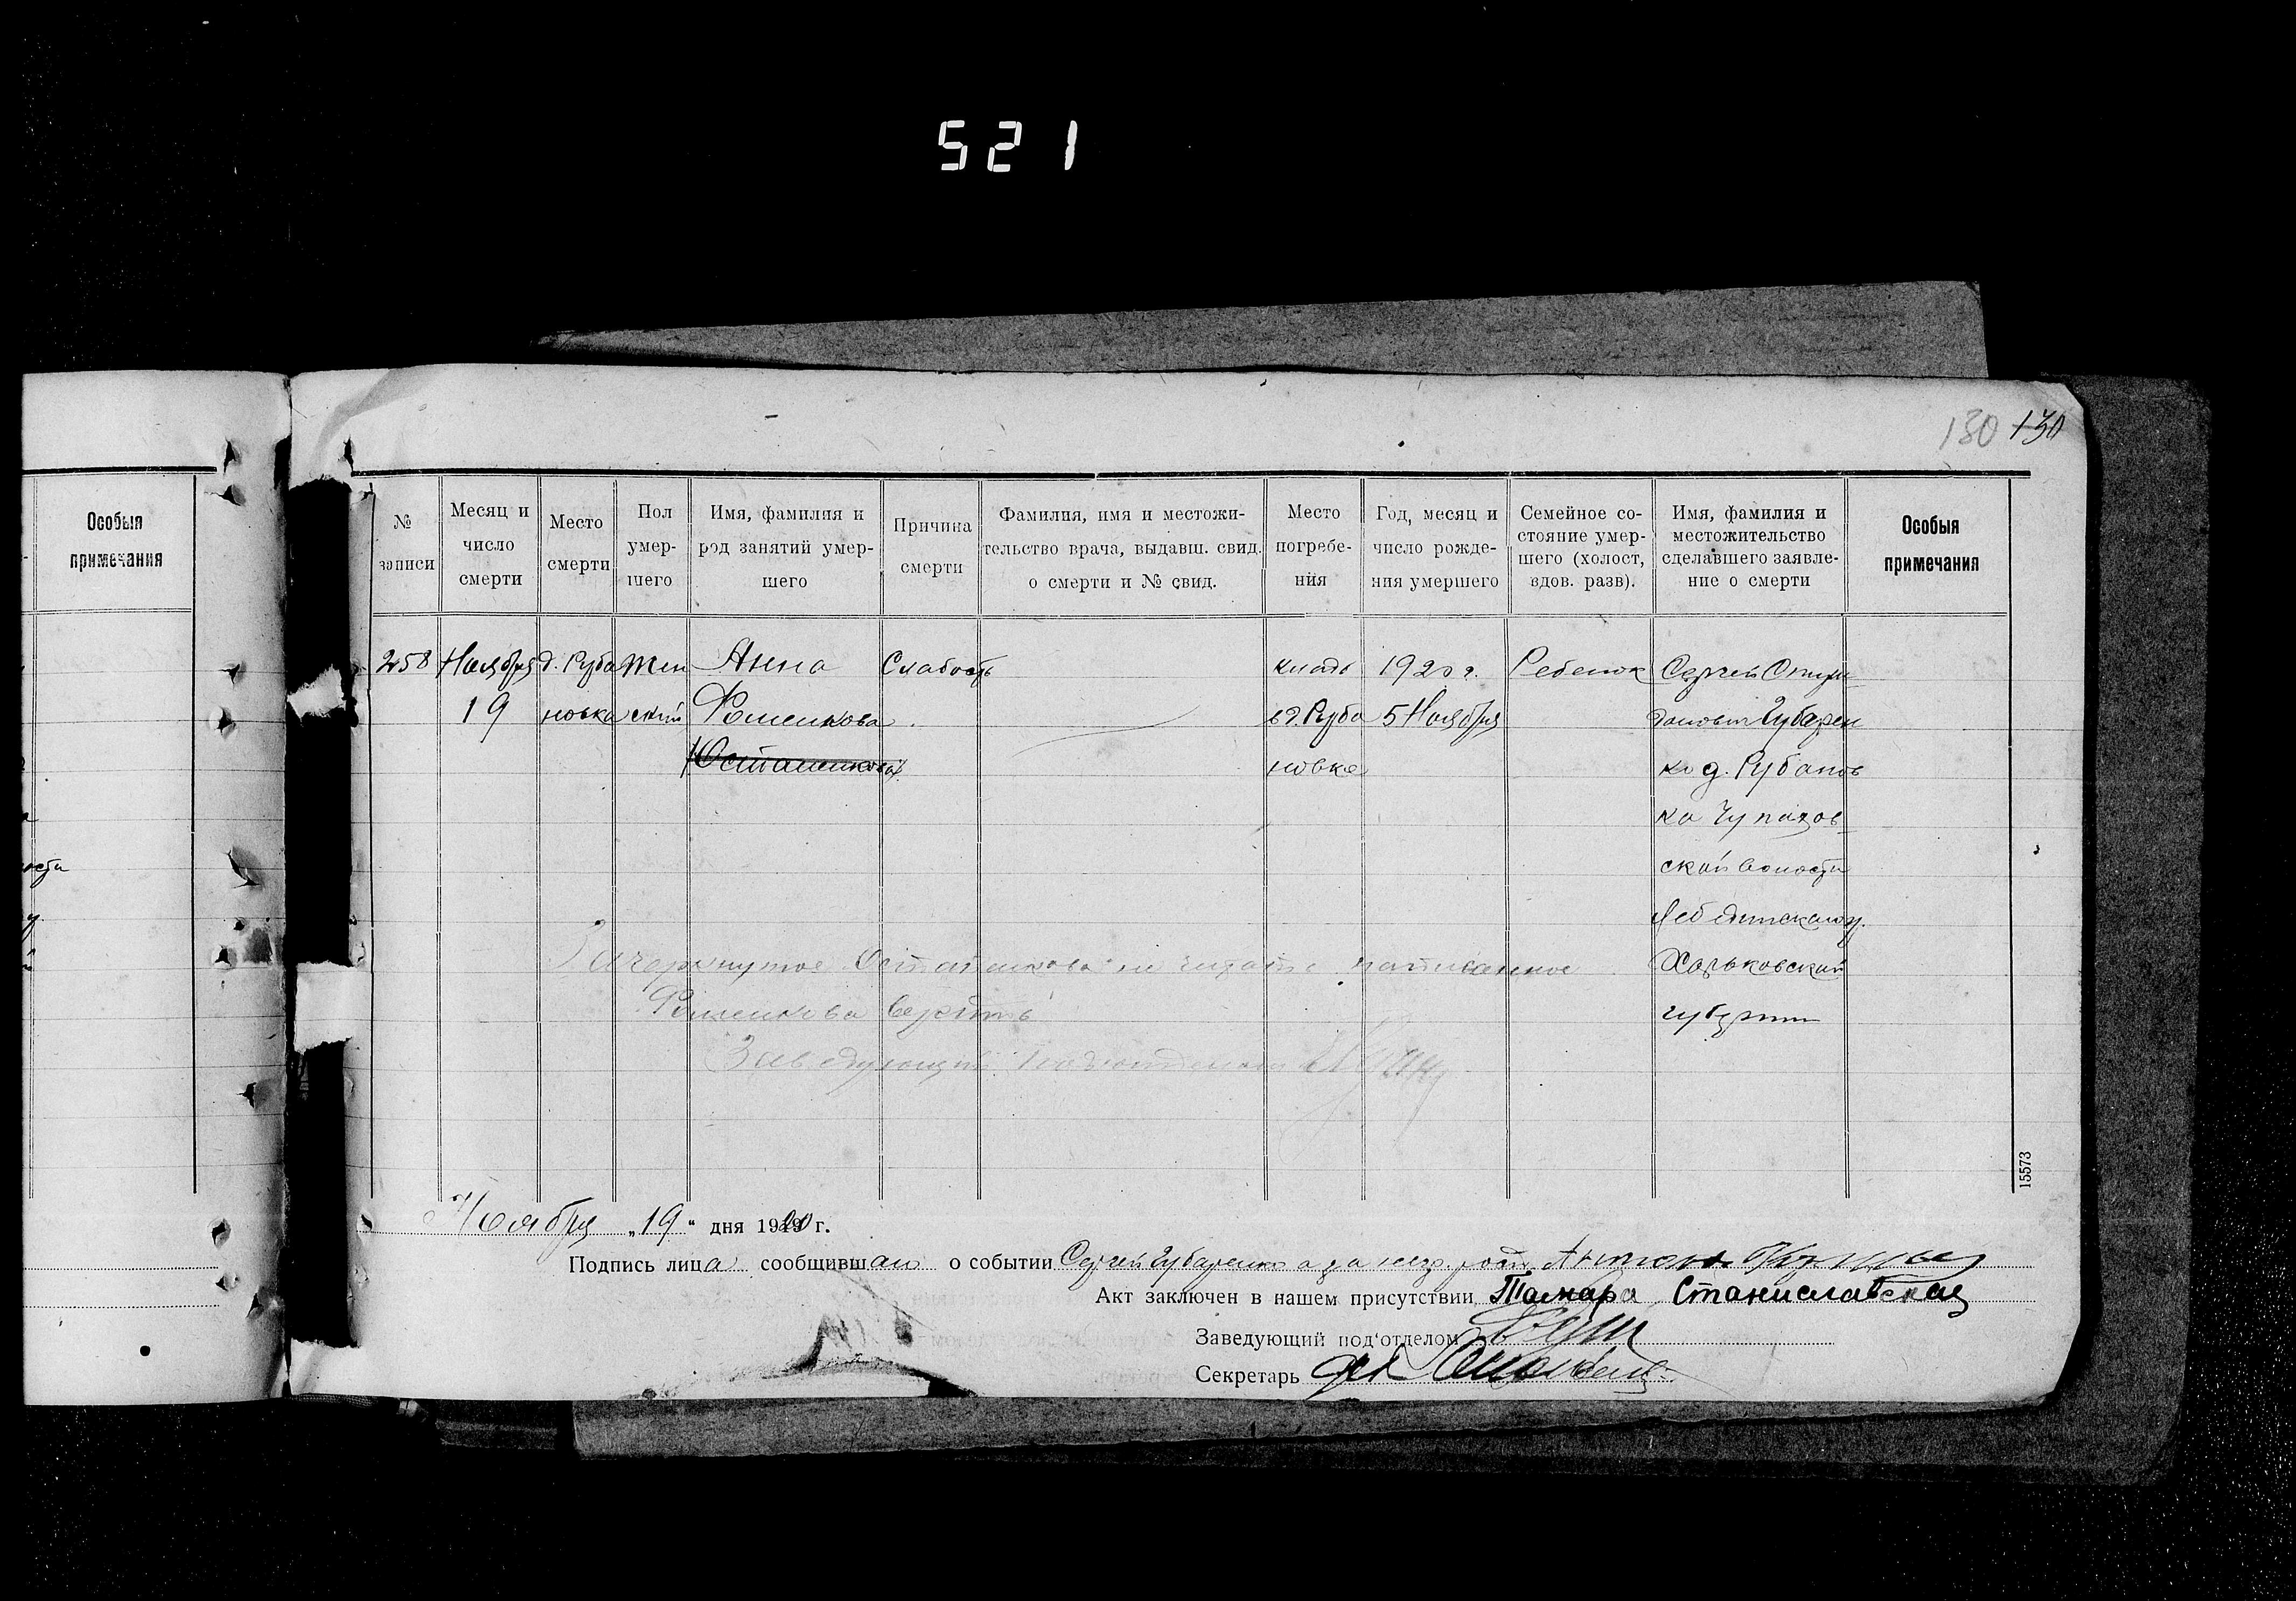 521
130 130
Особыя
примечания
№
записи
Месяц и
число
смерти
Место
смерти
Пол
умер-
шего
Имя, фамилия и
род занятий умер-
шего
Причина
смерти
Фамилия, имя и местожи-
тельство врача, выдавш. свид.
о смерти и № свид.
Место
погребе-
ния
Год, месяц и
число рожде-
ния умершего
Семейное со-
стояние умер-
шего (холост,
вдов. разв).
Имя, фамилия и
местожительство
сделавшего заявле-
ние о смерти
Особыя
примечания
258 Ноября д. Руба Жен Анна Слабость кладб 1920 г. Ребенок Сергей
19 новка ский Фоменкова в д. Руба 5 Ноября Губарен
Осташенкова новке ко д. Рубанов
ка Чупахов-
ской волости
Лебединского у.
Харьковской
губернии
Зачеркнутое Осташенкова не читать написанное
Фоменкова верить
Заведующий Подотделом
Ноября „19“ дня 1920 г.
Подпись лица сообщившаго о событии Сергей Губаренко а за негр. росп. Антон
Акт заключен в нашем присутствии Тамара Станиславская
Заведующий под‘отделом
Секретарь
15573